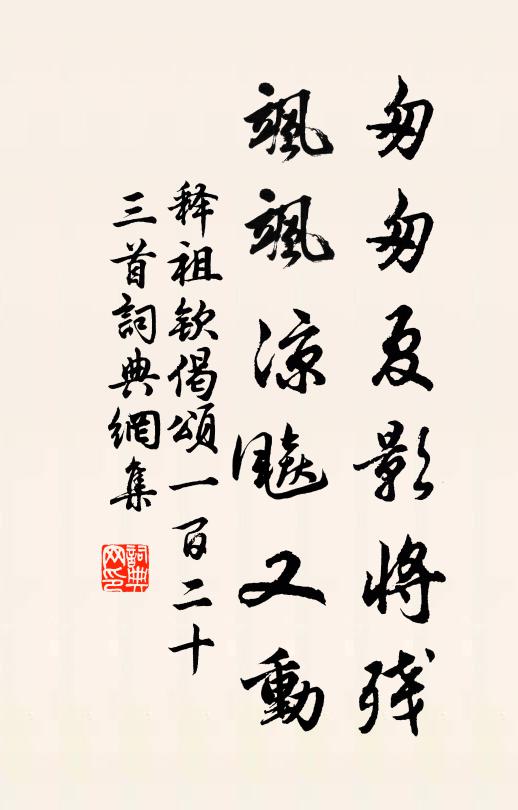 匆匆夏影將残
颯颯凉飈又動
释祖钦偈頌一百二十
三首詞典網集
詞典
网印